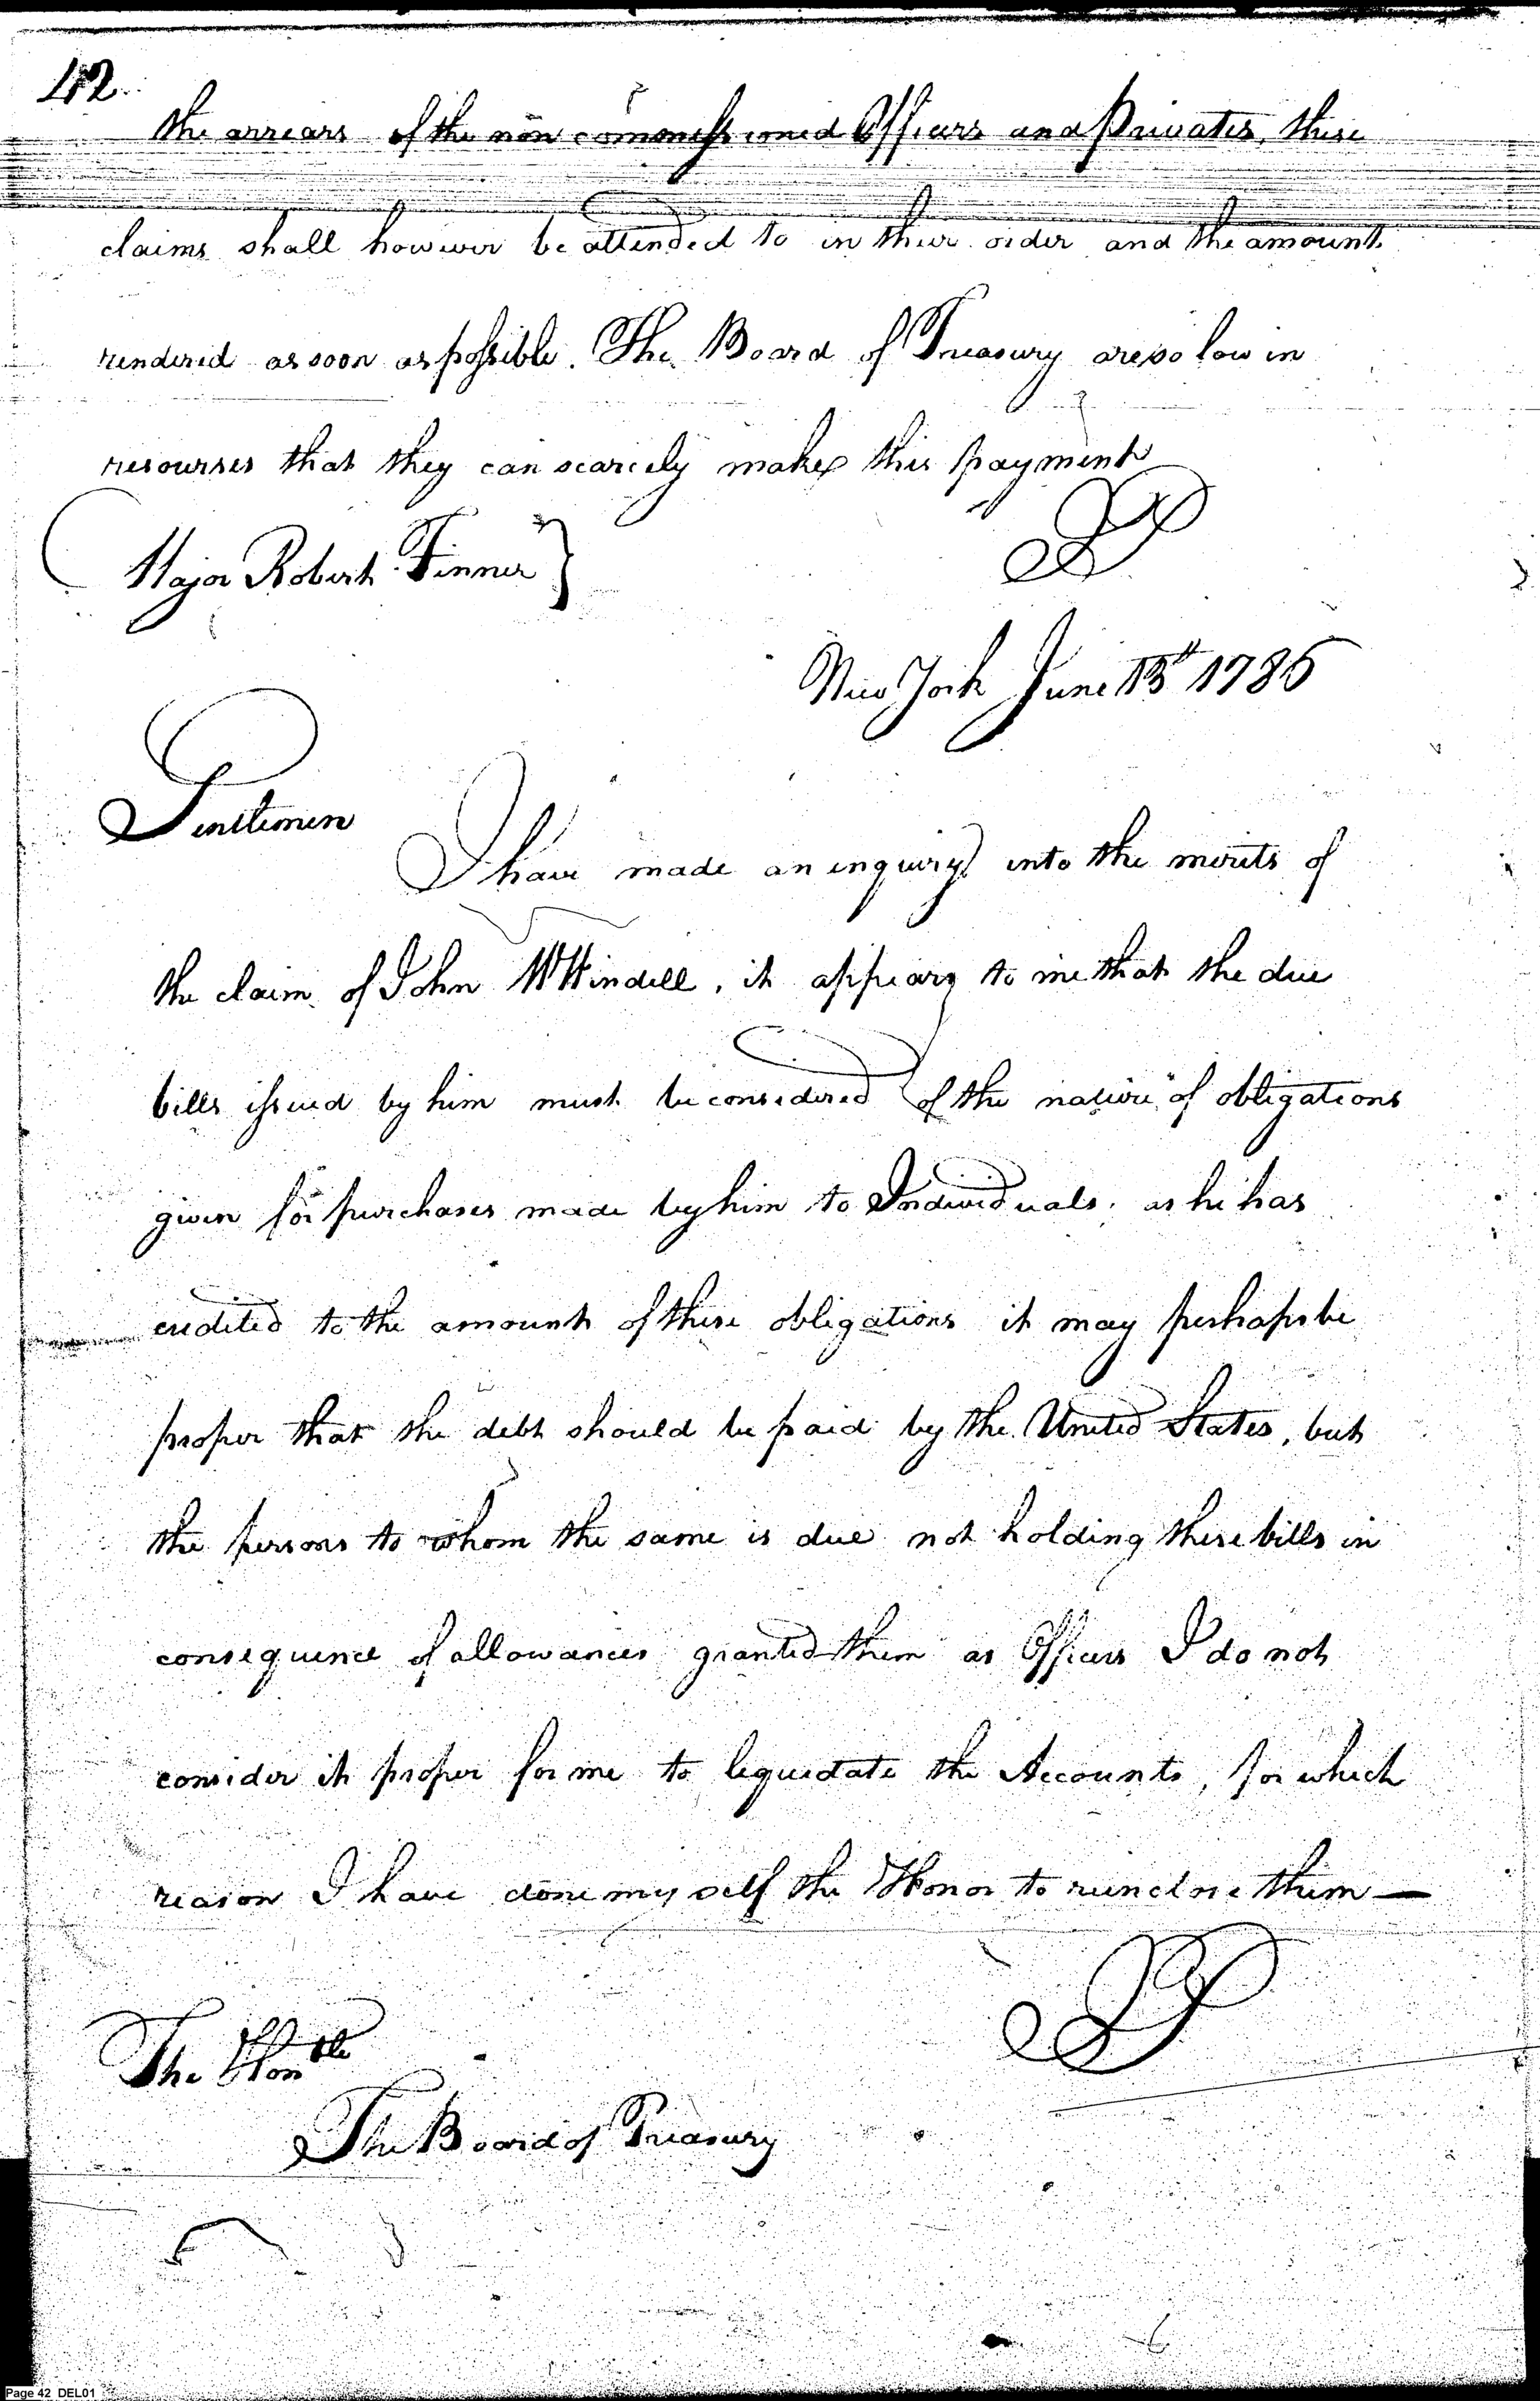 42
the arrears of the non commissioned Officers and Privates, these
claims shall however be attended to in their order and the amount
rendered as soon as possible. The Board of Treasury are so low in
resourses that they can scarcely make this payment
Major Robert Finner }
New York June 13th 1786
Gentlemen
I have made an inquiry into the merits of
the claim of John Windell, it appears to me that the due
bills issued by him must be considered of the nature of obligations
given for purchases made by him to Individuals, as he has
credited to the amount of these obligations it may perhaps be
proper that the debt should be paid by the United States, but
the persons to whom the same is due not holding these bills in
consequence of allowances granted them as Officers I do not
consider it proper for me to liquidate the Accounts, for which
reason I have done myself the Honor to reinclose them —
The Honble
The Board of Treasury
Page 42 DEL01